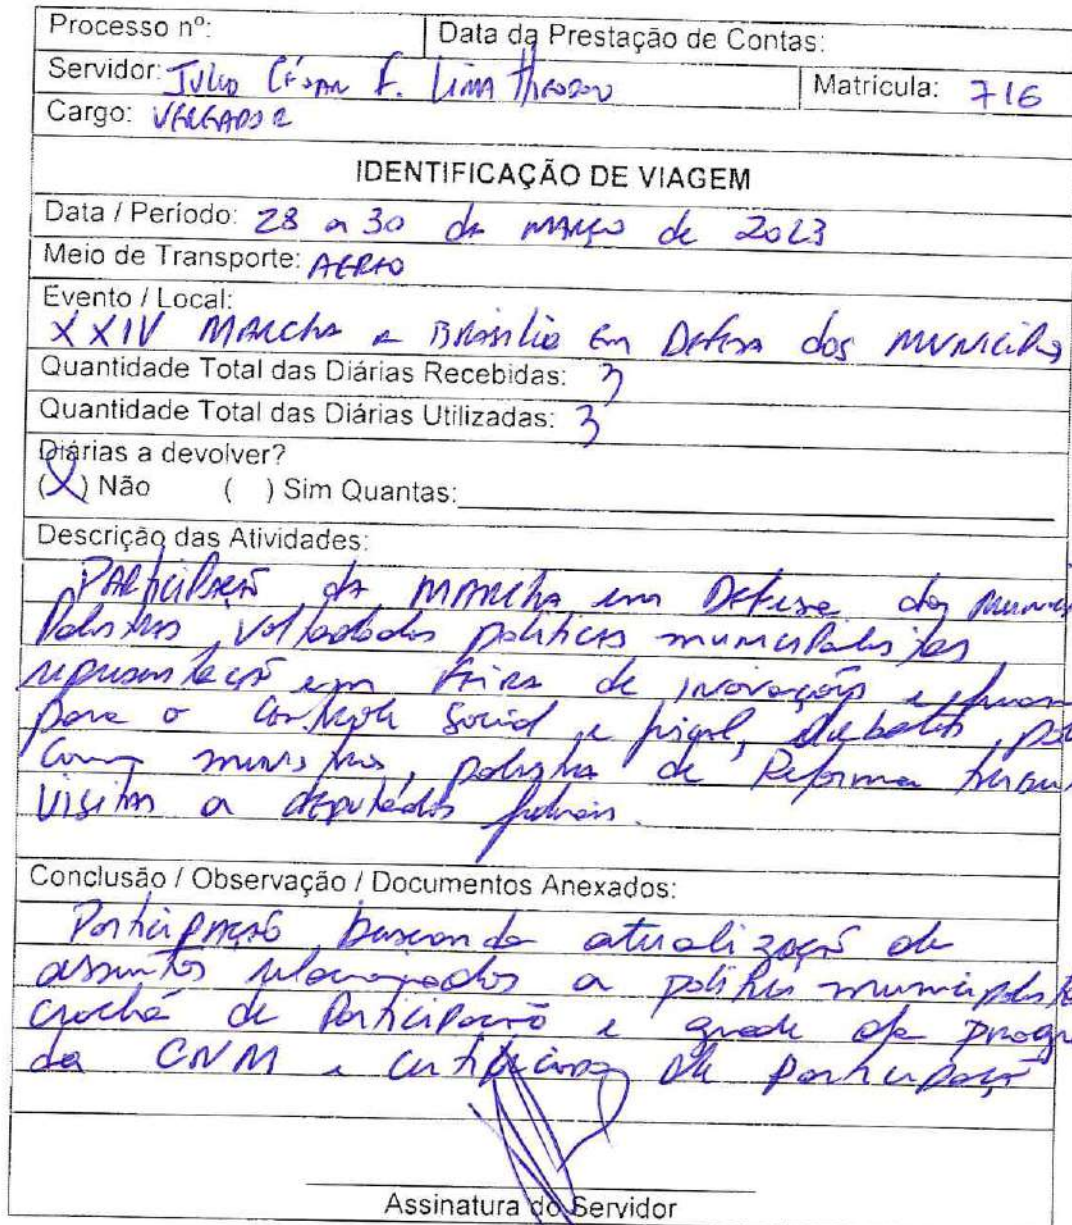 Processo nº: Data da Prestação de Contas:
Servidor: Julio César F. Lima Theodoro Matricula: 716
Cargo: VEREADOR
IDENTIFICAÇÃO DE VIAGEM
Data / Período: 28 a 30 de março de 2023
Meio de Transporte: AEREO
Evento / Local:
XXIV Marcha a Brasília em Defesa dos Municípios
Quantidade Total das Diárias Recebidas: 3
Quantidade Total das Diárias Utilizadas: 3
Diárias a devolver?
(X) Não ( ) Sim Quantas:
Descrição das Atividades:
Participação da Marcha em Defesa dos
Palestras, políticas municipalistas
representação em feira de inovação e
para o controle social e fiscal, debates,
com ministros, palestra de Reforma
Visitas a deputados federais.
Conclusão / Observação / Documentos Anexados:
Participação buscando atualização de
assuntos relacionados a política
crachá de Participação e grade de
da CNM e certificado de participação
Assinatura do Servidor